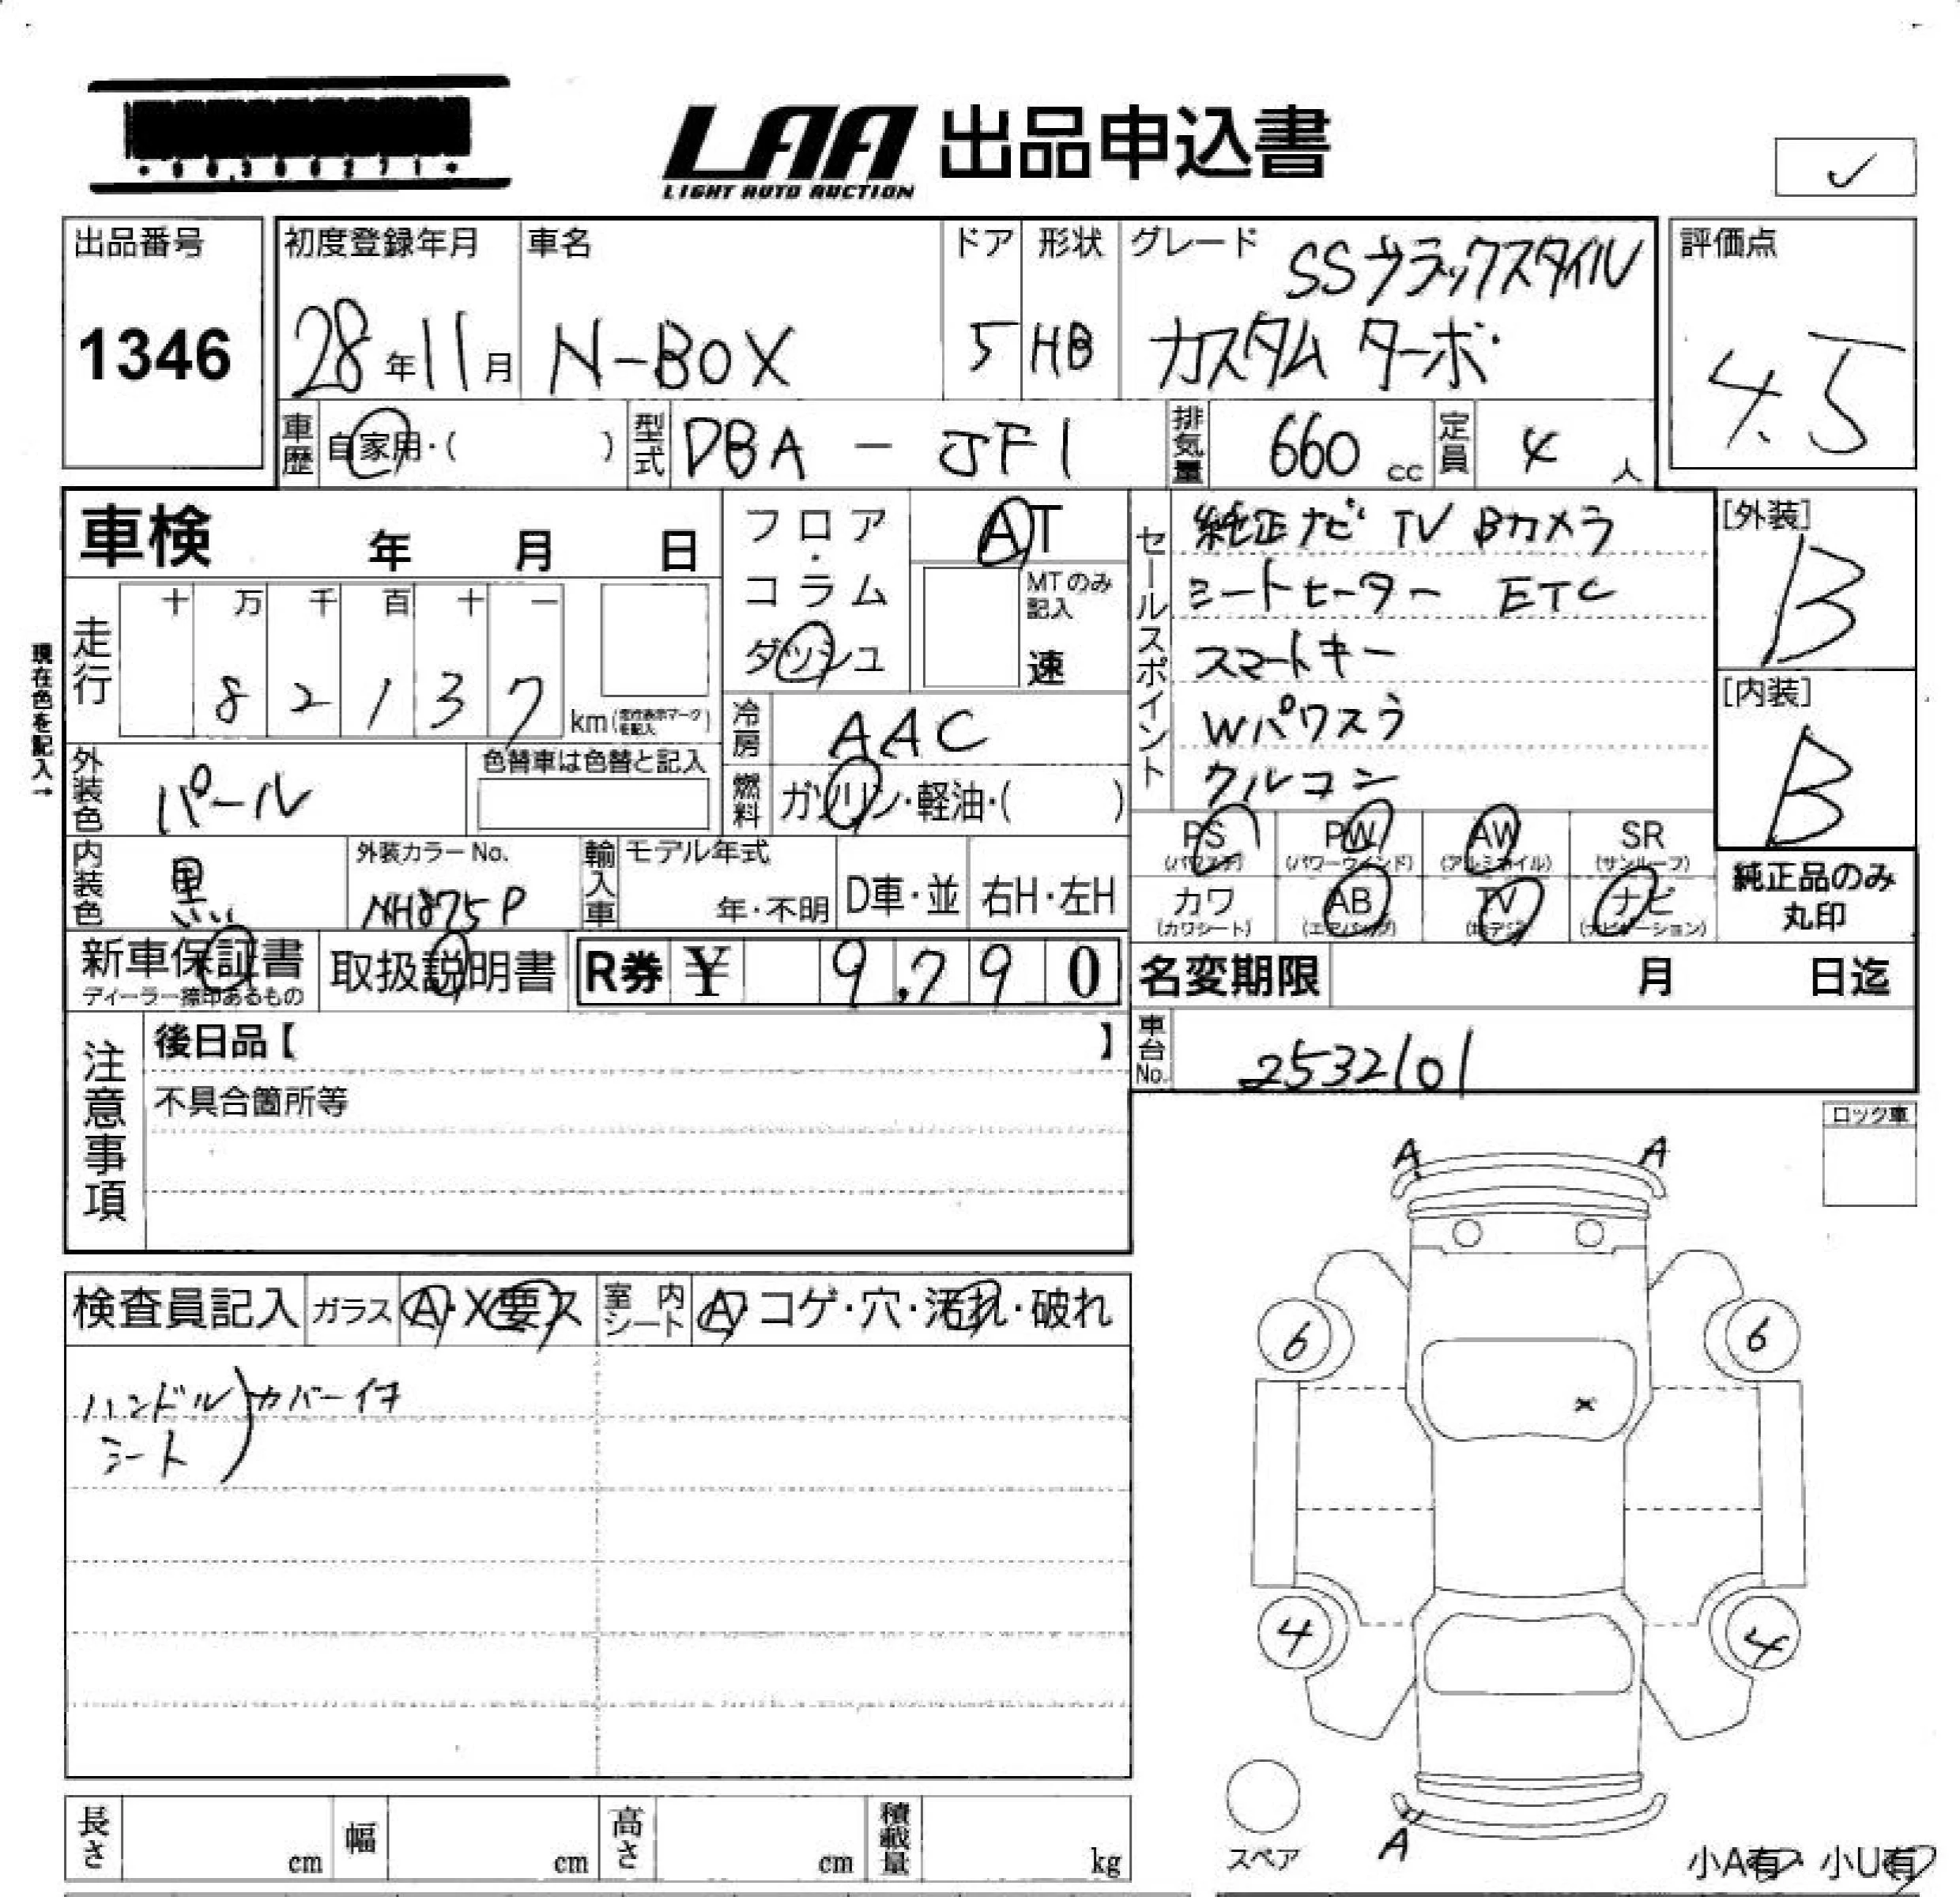 LAA 出品申込書
LIGHT AUTO AUCTION
✓
出品番号
1346
初度登録年月
28年11月
車名
N-BOX
ドア
5
形状
HB
グレード
SSブラックスタイル
カスタム ターボ
評価点
4.5
車歴
自家用・( )
型式
DBA - JF1
排気量
660 cc
定員
4 人
車検 年 月 日
フロア・コラム
ダッシュ
AT
MTのみ記入
速
セールスポイント
純正ナビ TV Bカメラ
シートヒーター ETC
スマートキー
Wパワスラ
クルコン
[外装]
B
[内装]
B
現在色を記入→
走行
十 万 千 百 十 一
8 2 1 3 7
km
冷房
AAC
外装色
パール
色替車は色替と記入
燃料
ガソリン・軽油・( )
内装色
黒
外装カラーNo.
NH875P
輸入車
モデル年式
年・不明
D車・並
右H・左H
PS PW AW SR
(パワステ) (パワーウィンド) (アルミホイル) (サンルーフ)
カワ AB TV ナビ
(カワシート) (エアバッグ) (地デジ) (ナビゲーション)
純正品のみ
丸印
新車保証書
ディーラー捺印あるもの
取扱説明書
R券 ¥ 9,790
名変期限 月 日迄
注意事項
後日品【 】
不具合箇所等
車台No.
2532101
ロック車
検査員記入
ガラス A・X要ス
室内シート A・コゲ・穴・汚れ・破れ
ハンドル
シート
カバーイキ
A A
6 6
×
4 4
A
スペア
小A有・小U有
長さ cm
幅 cm
高さ cm
積載量 kg